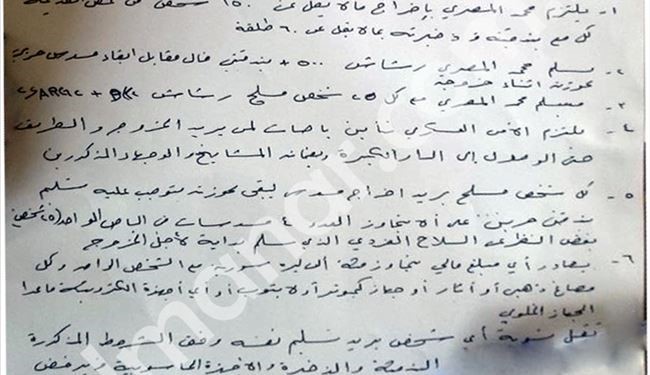 ١- يلتزم محمد المصري بإخراج مالا يقل عن ١٥٠ شخص
كل مع بندقيته وذخيرته بمالا يقل عن ٦٠ طلقة
٢- يسلم محمد المصري رشاش ٥٠٠ + بندقيتي فال مقابل ابقاء مسدس حربي
بحوزته اثناء خروجه
٣- يسلم محمد المصري مع كل ٢٥ شخص مسلح رشاش
٤- يلتزم الأمن العسكري تأمين باصات لمن يريد الخروج والطريق
حتى الوصول إلى الدار الكبيرة وبضمانه المشايخ والوجهاء المذكورين
٥- كل شخص مسلح يريد اخراج مسدس يبقى بحوزته يتوجب عليه تسليم
بندقيتين حربيتين على ألا يتجاوز العدد ٤ مسدسات في الباص الواحد
بغض النظر عن السلاح الفردي الذي سلم بداية لأجل الخروج
٦- يصادر أي مبلغ مالي يتجاوز مئة ألف ليرة سورية مع الشخص الواحد وكل
مصاغ ذهبي أو آثار أو جهاز كمبيوتر أو لابتوب أو أي أجهزة الكترونية ماعدا
الجهاز الخلوي
تقبل تسوية أي شخص يريد تسليم نفسه وفق الشروط المذكورة
والذخيرة والاجهزة الحاسوبية